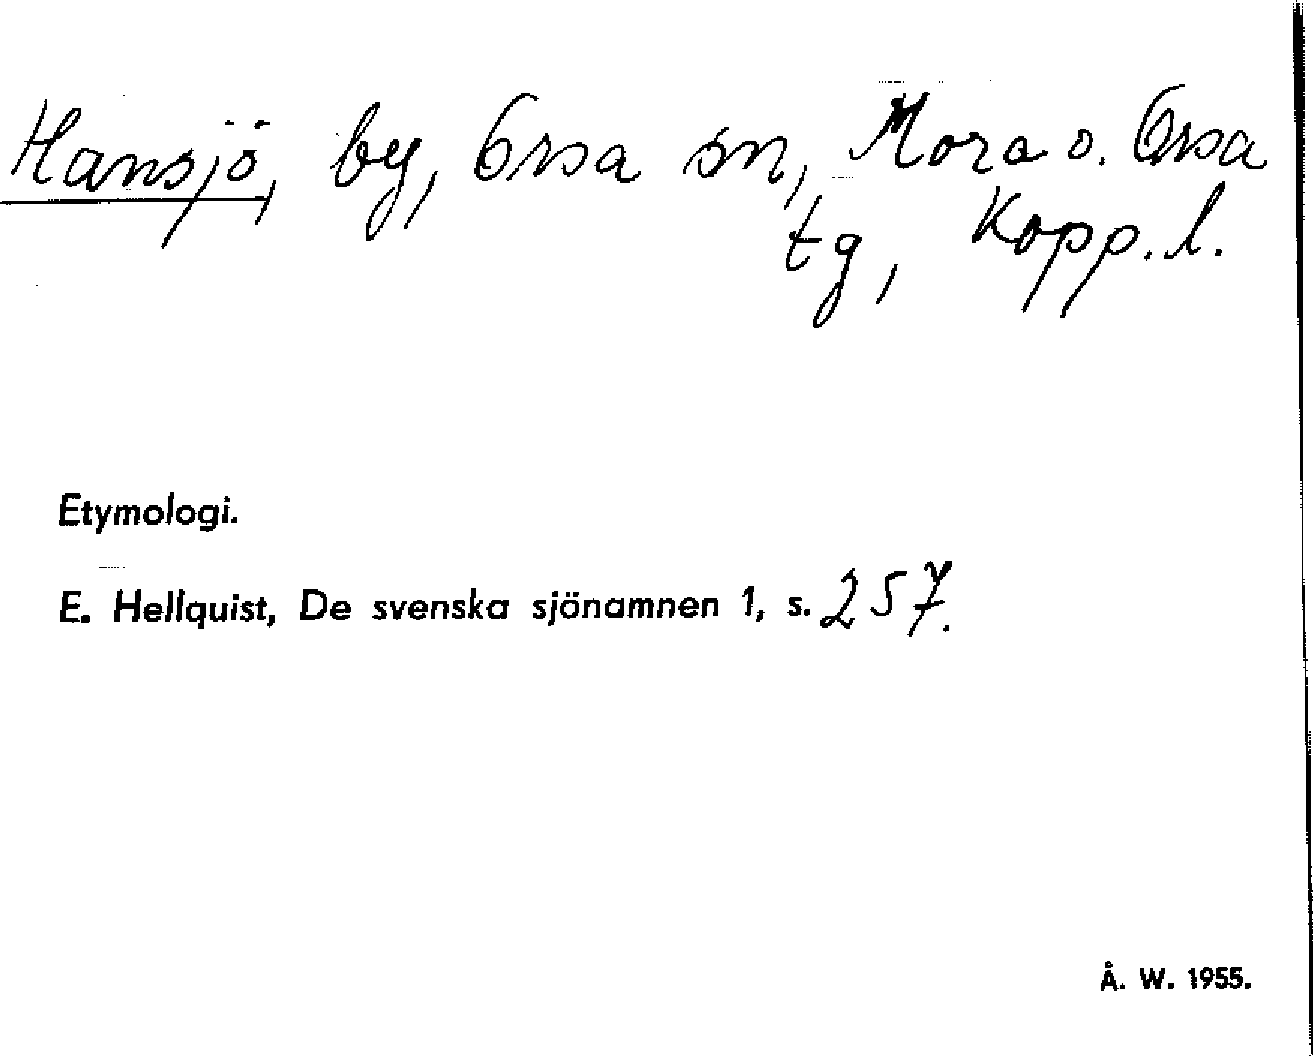 Hansjö, by, Orsa sn, Mora o. Orsa
tg, Kopp. l.
Etymologi.
E. Hellquist, De svenska sjönamnen 1, s. 257.
Å. W. 1955.